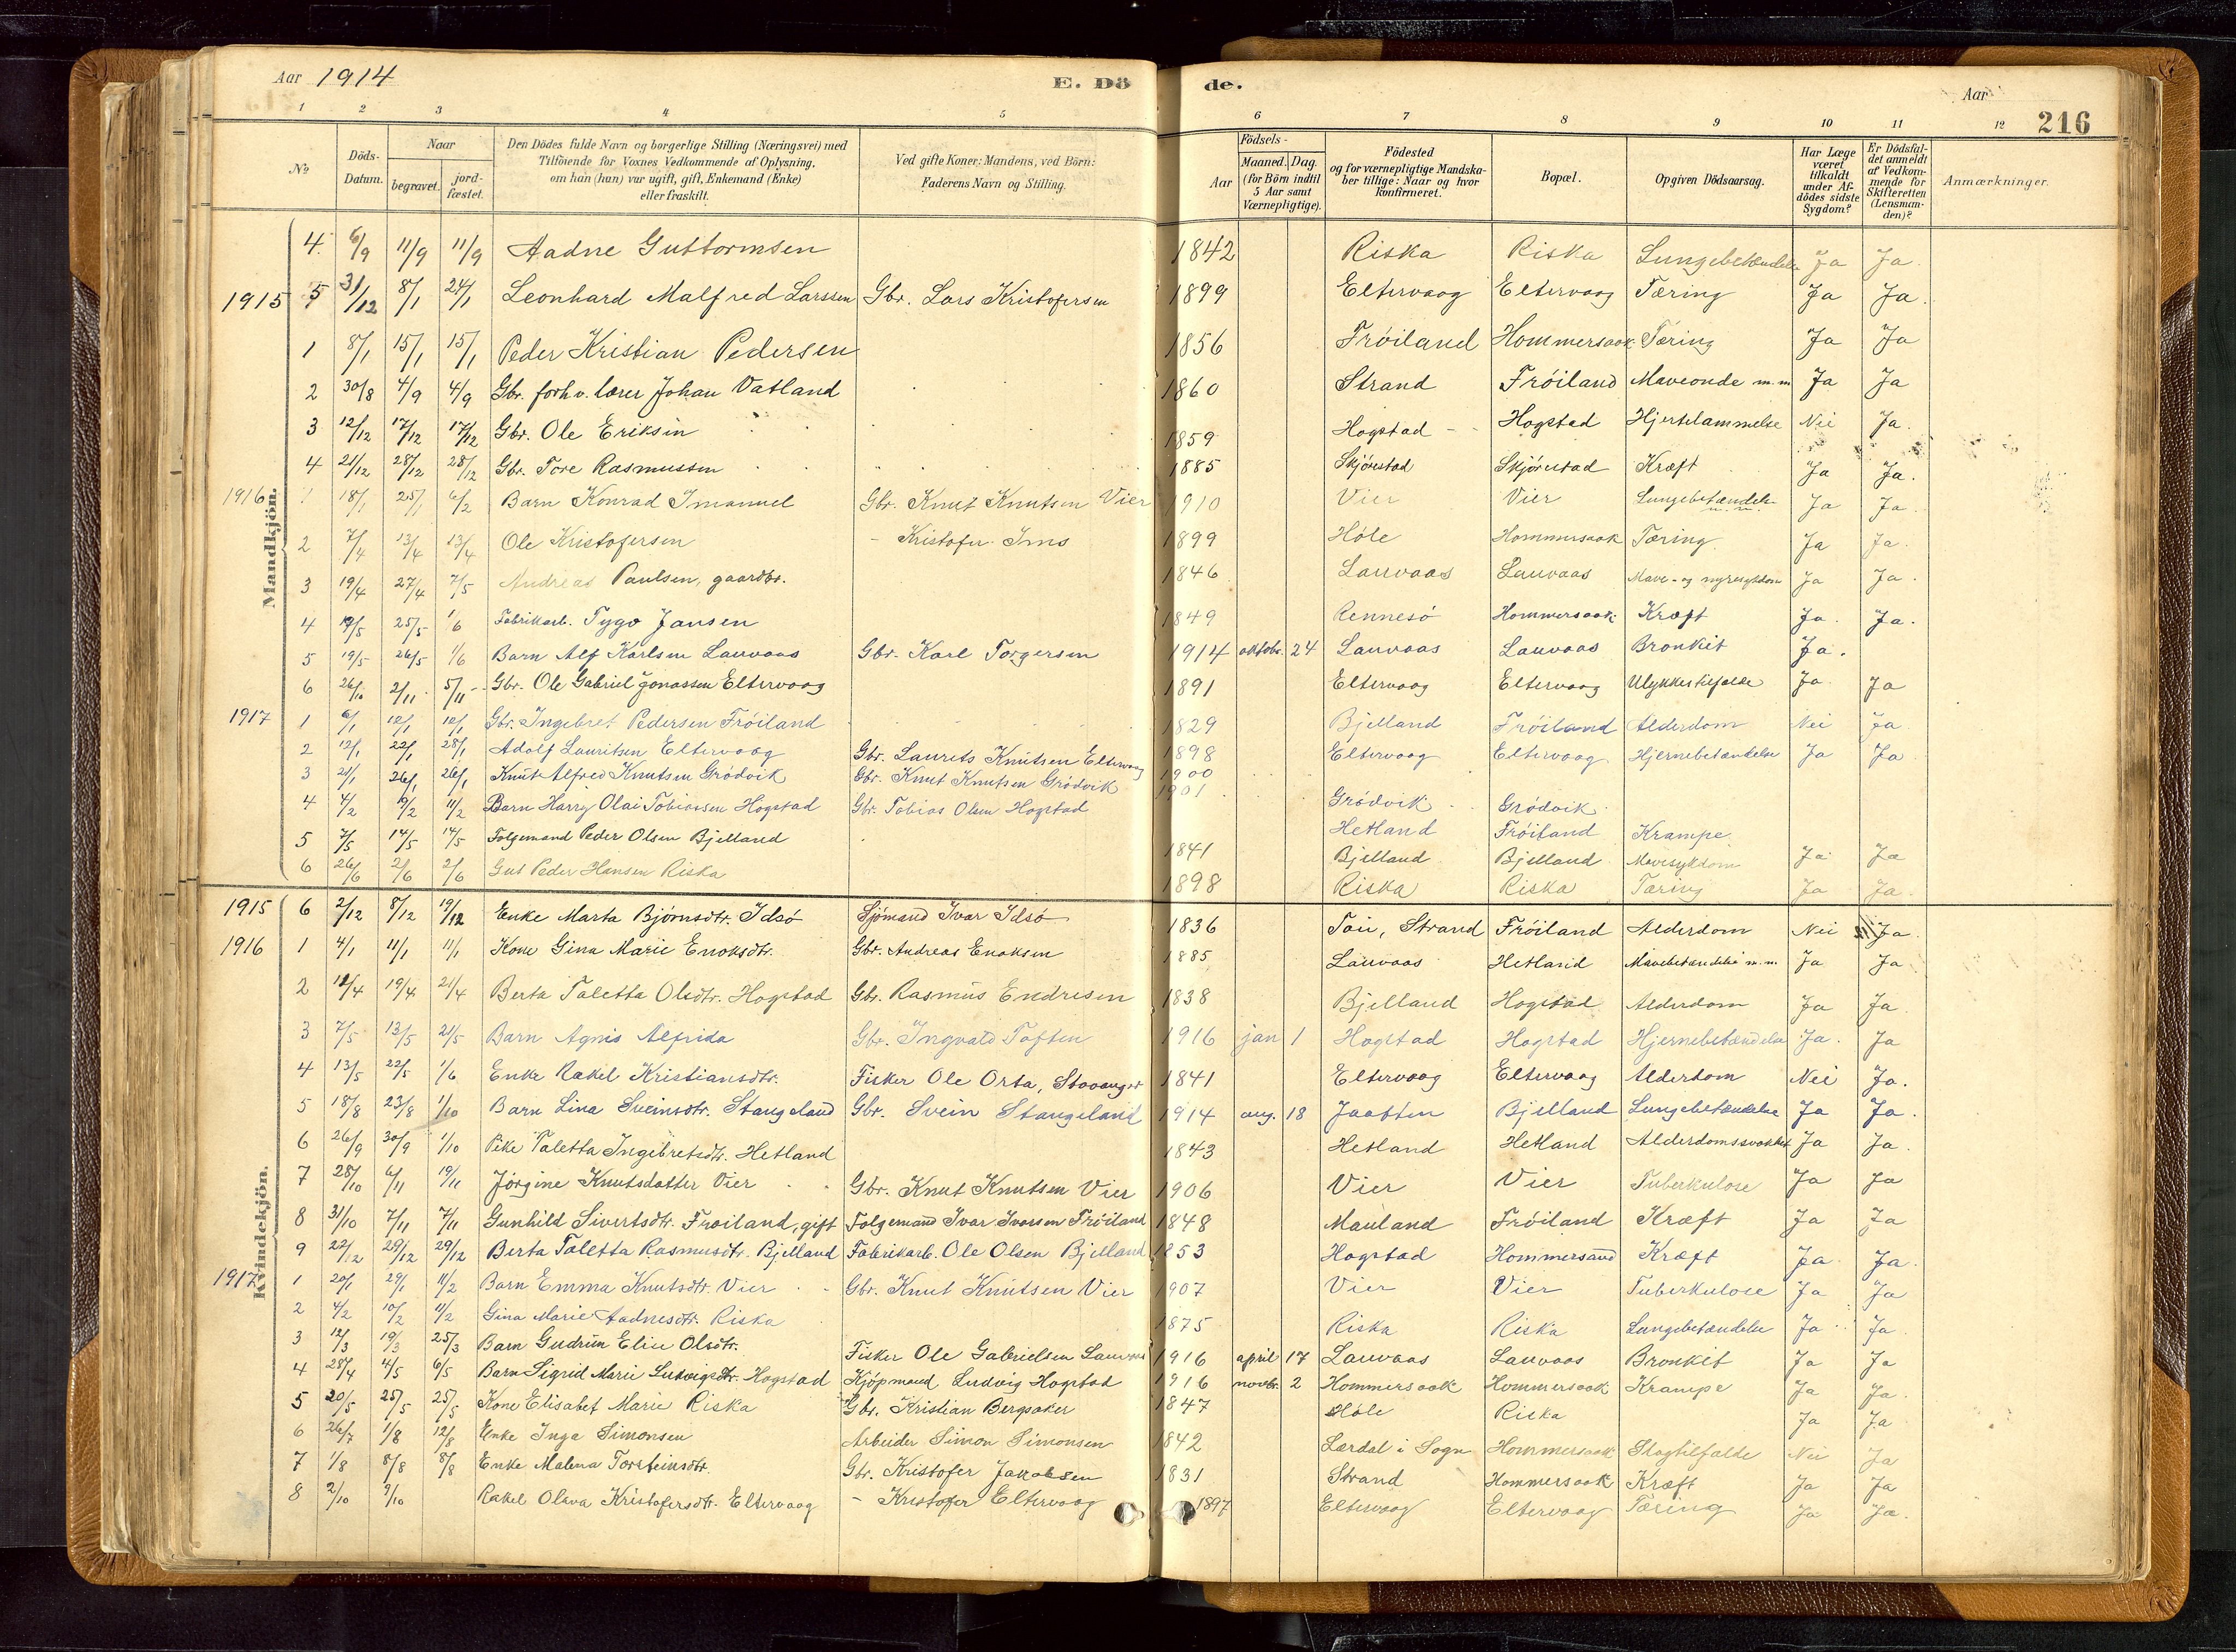 Aar 1914 E. Dö de. Aar 216
1 2 3 4 5 6 7 8 9 10 11 12
No Döds-Datum. Naar begravet. jord-fæstet. Den Dödes fulde Navn og borgerlige Stilling (Næringsvei) med Tilföiende for Voxnes Vedkommende af Oplysning, om han (hun) var ugift, gift, Enkemand (Enke) eller fraskilt. Ved gifte Koner: Mandens, ved Börn: Faderens Navn og Stilling. Födsels- Aar Maaned. Dag. (for Börn indtil 5 Aar samt Værnepligtige). Födested og for værnepligtige Mandskaber tillige: Naar og hvor konfirmeret. Bopæl. Opgiven Dödsaarsag. Har Læge været tilkaldt under Afdödes sidste Sygdom? Er Dödsfaldet anmeldt af Vedkommende for Skifteretten (Lensmanden)? Anmærkninger.
Mandkjön.
4 6/9 11/9 11/9 Aadne Guttormsen 1842 Riska Riska Lungebetændelse Ja Ja.
1915 5 31/12 8/1 24/1 Leonhard Malfred Larssen Gbr. Lars Kristofersen 1899 Eltervaag Eltervaag Tæring Ja Ja.
1 8/1 15/1 15/1 Peder Kristian Pedersen 1856 Frøiland Hommersaak Tæring Ja Ja
2 30/8 4/9 4/9 Gbr. forhv. lærer Johan Vatland 1860 Strand Frøiland Maveonde m.m Ja Ja
3 12/12 17/12 17/12 Gbr. Ole Eriksen 1859 Hogstad Hogstad Hjertelammelse Nei Ja.
4 21/12 28/12 28/12 Gbr. Tore Rasmussen 1885 Skjørestad Skjørestad Kræft Ja Ja.
1916 1 18/1 25/1 6/2 Barn Konrad Imanuel Gbr. Knut Knutsen Vier 1910 Vier Vier Lungebetændelse m.m. Ja Ja.
2 7/4 13/4 13/4 Ole Kristofersen - Kristofer Ims 1899 Høle Hommersaak Tæring Ja Ja.
3 19/4 27/4 7/5 Andreas Paulsen, gaardbr. 1846 Lauvaas Lauvaas Mave- og nyresykdom Ja Ja.
4 19/5 25/5 1/6 Fabrikarb. Tygo Jansen 1849 Rennesö Hommersaak Kræft Ja. Ja.
5 19/5 26/5 1/6 Barn Alf Karlsen Lauvaas Gbr. Karl Torgersen 1914 oktobr. 24 Lauvaas Lauvaas Bronkit Ja.
6 26/10 2/11 5/11 Gbr. Ole Gabriel Jonassen Eltervaag 1891 Eltervaag Eltervaag Ulykkestilfælde Ja Ja
1917 1 6/1 12/1 12/1 Gbr. Ingebret Pedersen Frøiland 1829 Bjelland Frøiland Alderdom Nei Ja
2 12/1 22/1 28/1 Adolf Lauritsen Eltervaag Gbr. Laurits Knutsen Eltervaag 1898 Eltervaag Eltervaag Hjernebetændelse Ja Ja
3 21/1 26/1 26/1 Knut Alfred Knutsen Grødvik Gbr. Knut Knutsen Grødvik 1900 Grødvik Grødvik
4 4/2 /2 11/2 Barn Harry Olai Tobiassen Hogstad Gbr. Tobias Olsen Hogstad 1901 Hetland Frøiland Krampe
5 7/5 14/5 14/5 Folgemand Peder Olsen Bjelland 1841 Bjelland Bjelland Mavesykdom Ja Ja
6 26/6 2/6 2/6 Gut Peder Hansen Riska 1898 Riska Riska Tæring Ja Ja
Kvindekjön.
1915 6 2/12 8/12 19/12 Enke Marta Bjørnsdtr. Idsø Sjømand Ivar Idsø 1836 Tau, Strand Frøiland Alderdom Nei Ja.
1916 1 4/1 11/1 11/1 Kone Gina Marie Enoksdtr. Gbr. Andreas Enoksen 1885 Lauvaas Hetland Mavebetændelse m.m. Ja Ja
2 12/4 19/4 21/4 Berta Taletta Olsdtr. Hogstad Gbr. Rasmus Endresen 1838 Bjelland Hogstad Alderdom Ja Ja
3 7/5 13/5 21/5 Barn Agnis Alfrida Gbr. Ingvald Toften 1916 jan 1 Hogstad Hogstad Hjernebetændelse Ja. Ja
4 13/5 22/5 1/6 Enke Rakel Kristiansdtr. Fisker Ole Orta, Stavanger 1841 Eltervaag Eltervaag Alderdom Nei Ja.
5 18/8 23/8 1/10 Barn Lina Sveinsdtr. Stangeland Gbr. Svein Stangeland 1914 aug. 18 Jaatten Bjelland Lungebetændelse Ja Ja.
6 26/9 30/9 1/10 Pike Taletta Ingebretsdtr. Hetland 1843 Hetland Hetland Alderdomssvakhet Ja Ja.
7 28/10 6/11 19/11 Jørgine Knutsdatter Vier Gbr. Knut Knutsen Vier 1906 Vier Vier Tuberkulose Ja Ja
8 31/10 7/11 7/11 Gunhild Sivertsdtr. Frøiland, gift Folgemand Ivar Ivarsen Frøiland 1848 Mauland Frøiland Kræft Ja Ja
9 22/12 29/12 29/12 Berta Taletta Rasmusdtr. Bjelland Fabrikarb. Ole Olsen Bjelland 1853 Hogstad Hommersand Kræft Ja. Ja.
1917 1 20/1 29/1 11/2 Barn Emma Knutsdtr. Vier Gbr. Knut Knutsen Vier 1907 Vier Vier Tuberkulose Ja Ja
2 4/2 10/2 11/2 Gina Marie Aadnesdtr. Riska 1875 Riska Riska Lungebetændelse Ja Ja
3 12/3 19/3 25/3 Barn Gudrun Elise Olsdtr. Fisker Ole Gabrielsen Lauvaas 1916 april 17 Lauvaas Lauvaas Bronkit Ja Ja
4 28/4 4/5 6/5 Barn Sigrid Marie Ludvigsdtr. Hogstad Kjøpmand Ludvig Hogstad 1916 novbr. 2 Hommersaak Hommersaak Krampe Ja Ja.
5 20/5 25/5 25/5 Kone Elisabet Marie Riska Gbr. Kristian Bergsaker 1847 Høle Riska Ja Ja
6 26/7 1/8 12/8 Enke Inga Simonsen Arbeider Simon Simonsen 1842 Lærdal i Sogn Hommersaak Slagtilfælde Nei Ja
7 1/8 8/8 8/8 Enke Malena Torsteinsdtr. Gbr. Kristofer Jakobsen 1831 Strand Hommersaak Kræft Ja Ja
8 2/10 9/10 Rakel Olava Kristofersdtr. Eltervaag - Kristofer Eltervaag 1897 Eltervaag Eltervaag Tæring Ja Ja.